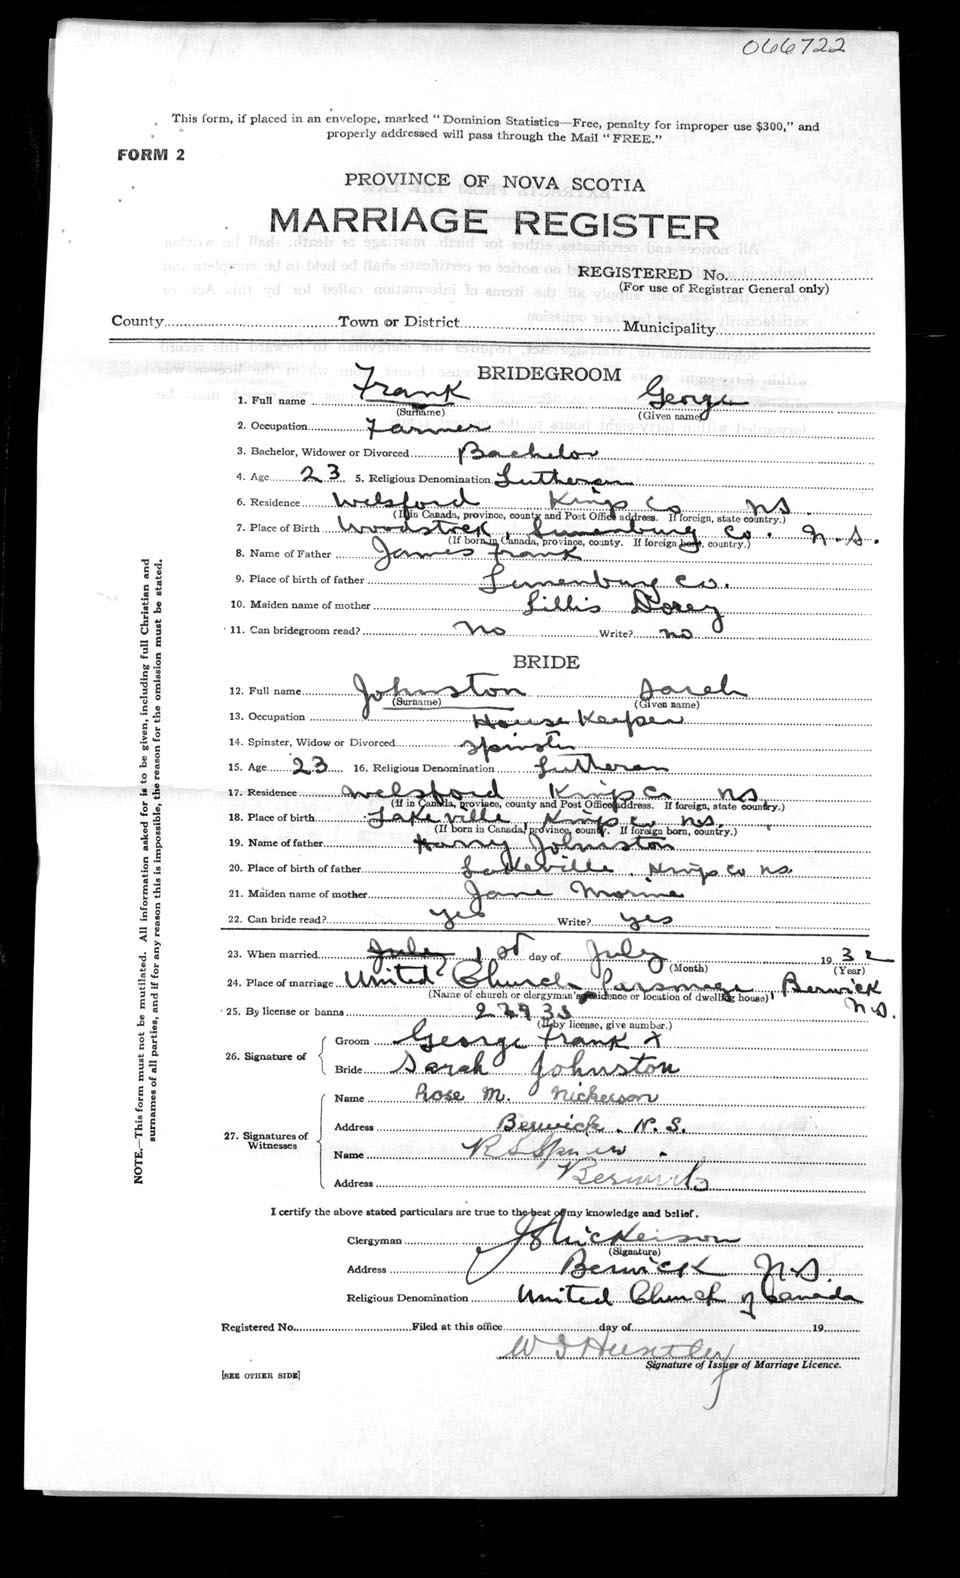 066722
This form, if placed in an envelope, marked "Dominion Statistics—Free, penalty for improper use $300," and
properly addressed will pass through the Mail "FREE."
FORM 2
PROVINCE OF NOVA SCOTIA
MARRIAGE REGISTER
REGISTERED No.
(For use of Registrar General only)
County Town or District Municipality
BRIDEGROOM
1. Full name Frank George
(Surname) (Given name)
2. Occupation Farmer
3. Bachelor, Widower or Divorced Bachelor
4. Age 23 5. Religious Denomination Lutheran
6. Residence Welsford Kings Co NS.
(If in Canada, province, county and Post Office address. If foreign, state country.)
7. Place of Birth Woodstock, Lunenburg Co. N.S.
(If born in Canada, province, county. If foreign born, country.)
8. Name of Father James Frank
9. Place of birth of father Lunenburg Co.
10. Maiden name of mother Lillis Dorey
11. Can bridegroom read? No Write? no
BRIDE
12. Full name Johnston Sarah
(Surname) (Given name)
13. Occupation House Keeper
14. Spinster, Widow or Divorced Spinster
15. Age 23 16. Religious Denomination Lutheran
17. Residence Welsford Kings Co NS
(If in Canada, province, county and Post Office address. If foreign, state country.)
18. Place of birth Lakeville, Kings Co NS.
(If born in Canada, province, county. If foreign born, country.)
19. Name of father Harry Johnston
20. Place of birth of father Lakeville. Kings Co NS.
21. Maiden name of mother Jane Morine
22. Can bride read? yes Write? yes
23. When married July 1st day of July 1932
(Month) (Year)
24. Place of marriage United Church Parsonage, Berwick
(Name of church or clergyman's residence or location of dwelling house) N.S.
25. By license or banns
(If by license, give number.)
26. Signature of
Groom George Frank X
Bride Sarah Johnston
27. Signatures of Witnesses
Name Rose M. Nickerson
Address Berwick. N.S.
Name
Address Berwick
I certify the above stated particulars are true to the best of my knowledge and belief.
Clergyman Nickerson
(Signature)
Address Berwick N.S.
Religious Denomination United Church of Canada
Registered No. Filed at this office day of 19
Huntley
Signature of Issuer of Marriage Licence.
[SEE OTHER SIDE]
NOTE.—This form must not be mutilated. All information asked for is to be given, including full Christian and
surnames of all parties, and if for any reason this is impossible, the reason for the omission must be stated.